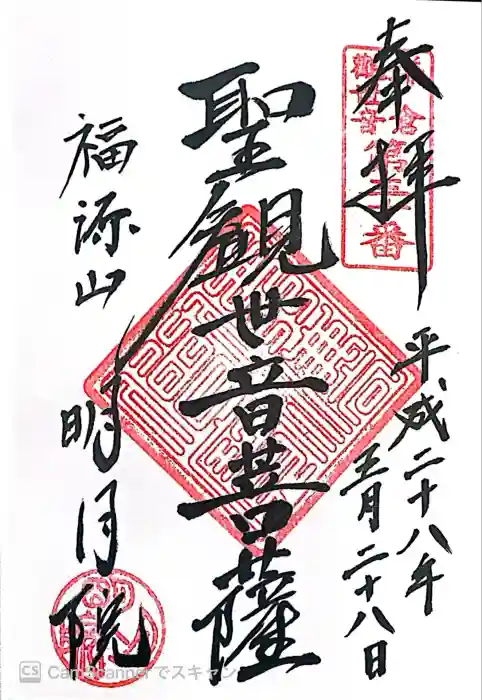 奉拝
平成二十八年
五月二十八日
聖観世音菩薩
福源山
明月院
CS CamScannerでスキャン